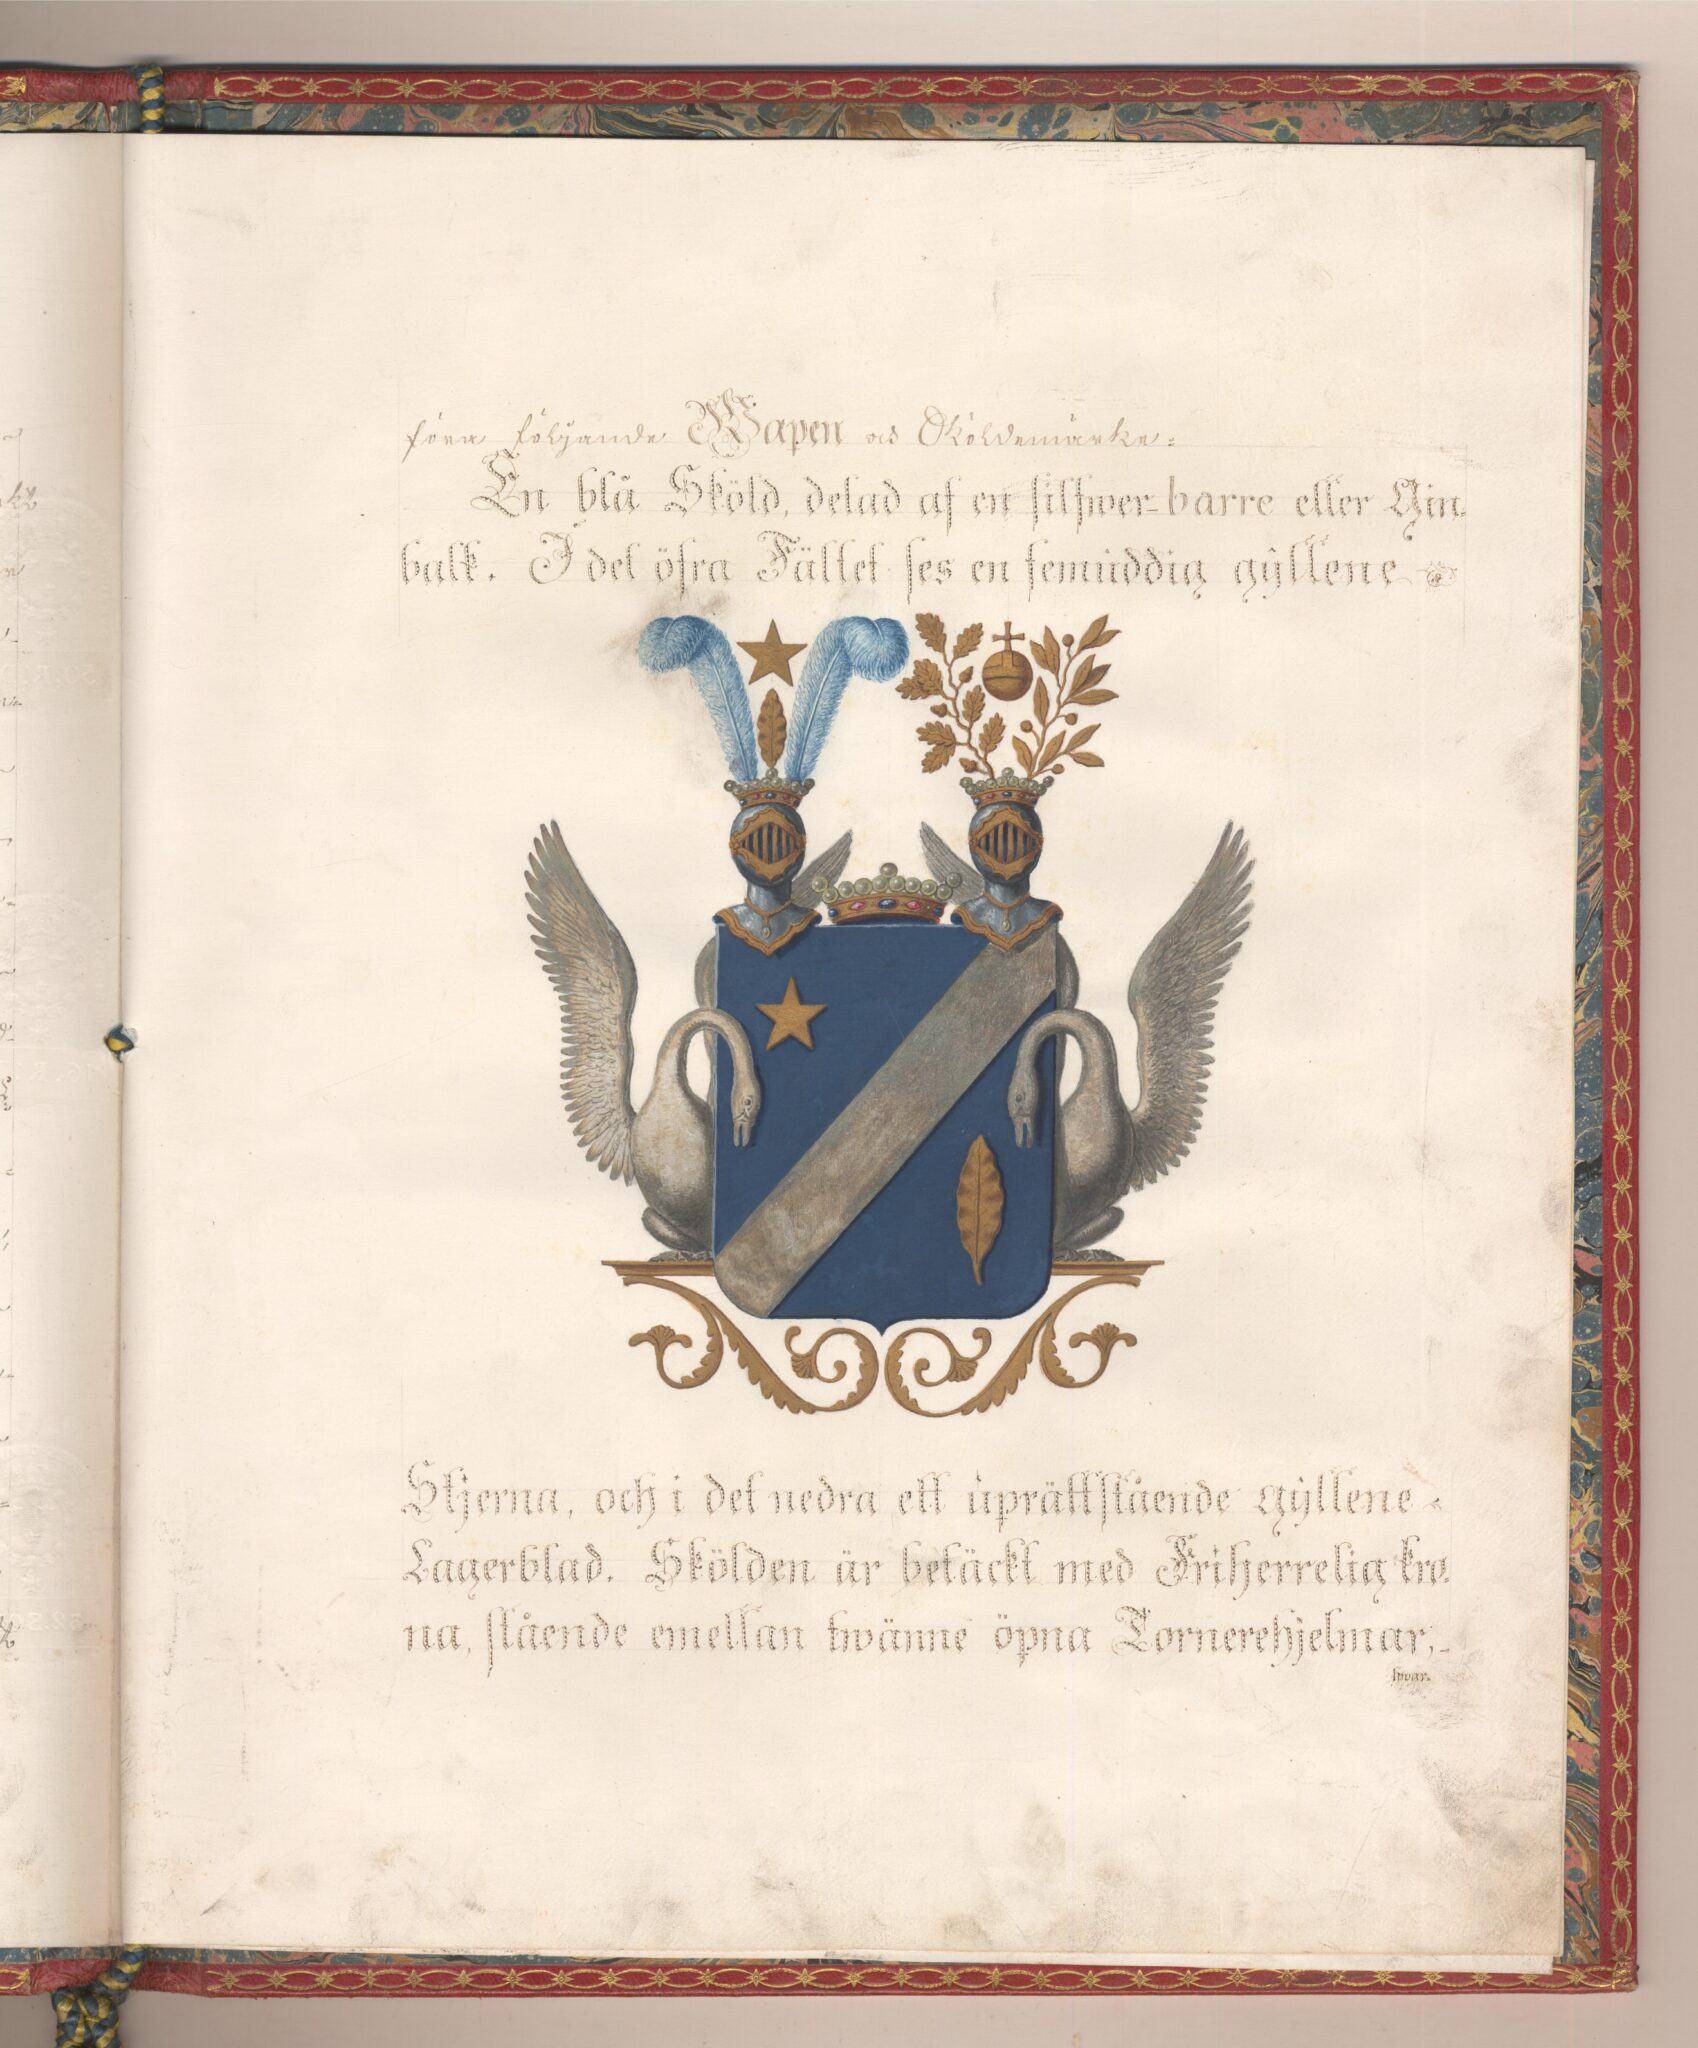 föra följande Wapen och Sköldemärke:
En blå Sköld, delad af en silfwer-barre eller Gin-
balk. I det öfra Fältet ses en femuddig gyllene
Skjerna, och i det nedra ett uprättstående gyllene
Lagerblad. Skölden är betäckt med Friherrelig kro-
na, stående emellan twänne öpna Tornerehjelmar,
hwar.